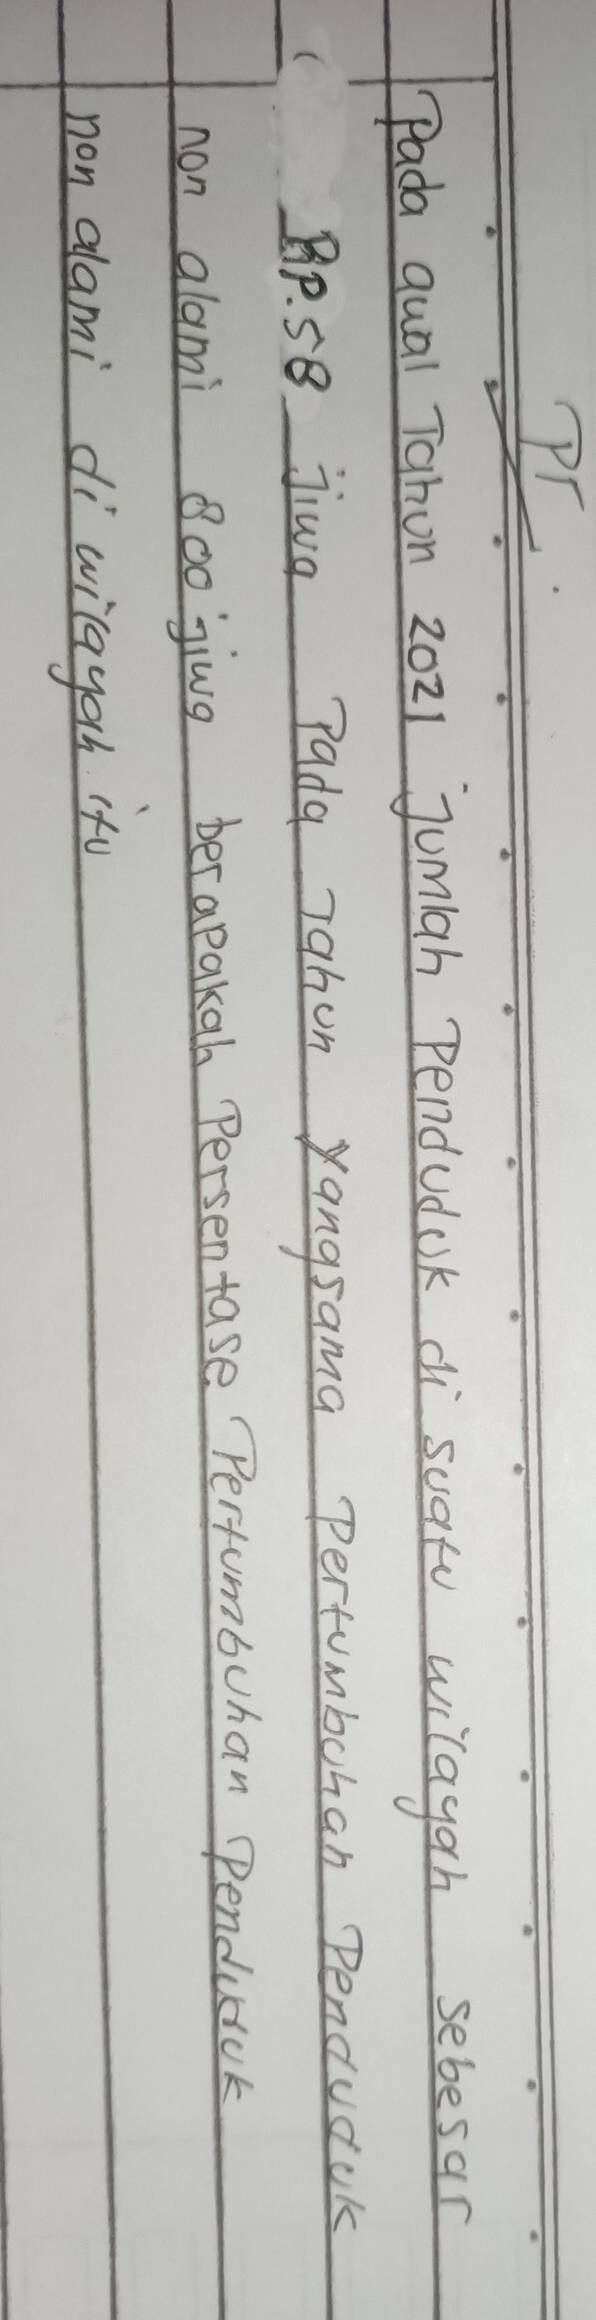 Pr
Pada awal Tahun 2021 jumlah Penduduk di suatu wilayah sebesar
RP.58 jiwa Pada Tahun Yangsama Pertumbuhan Penduduk
non alami 800 jiwa berapakah Persentase Pertumbuhan Penduduk
non alami di wilayah itu